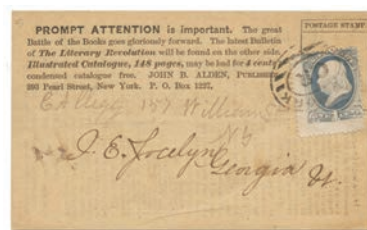 PROMPT ATTENTION is important. The great
Battle of the Books goes gloriously forward. The latest Bulletin
of The Literary Revolution will be found on the other side.
Illustrated Catalogue, 148 pages, may be had for 4 cents;
condensed catalogue free. JOHN B. ALDEN, PUBLISHER
393 Pearl Street, New York. P. O. Box 1227,
POSTAGE STAMP
College 157 William
NY
J. E. Jocelyn,
Georgia Vt.